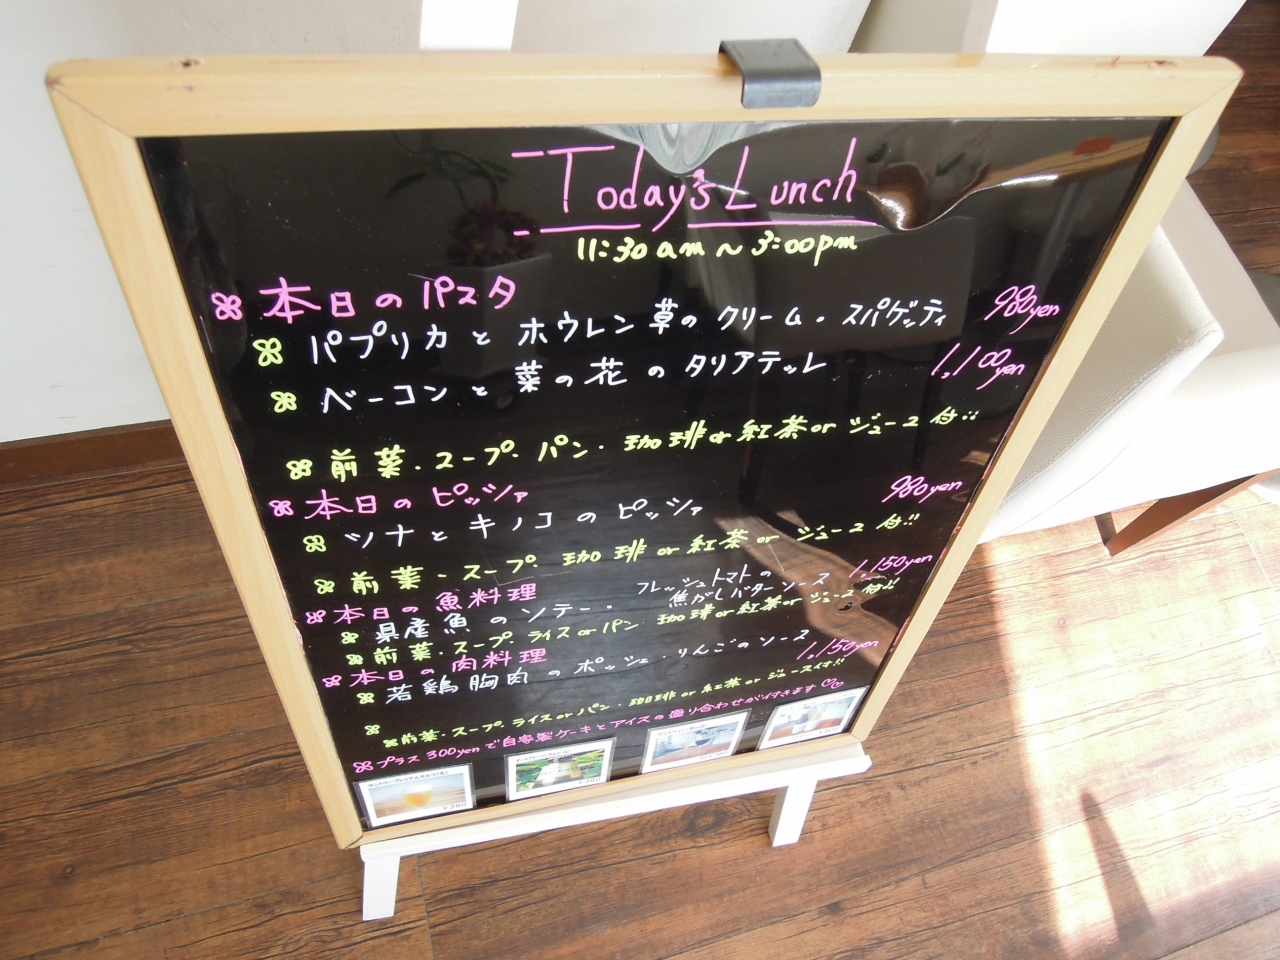 Today's Lunch
11:30am～3:00pm
本日のパスタ
パプリカとホウレン草のクリーム・スパゲッティ 980yen
ベーコンと菜の花のタリアテッレ 1,100yen
前菜・スープ・パン・珈琲or紅茶orジュース付!!
本日のピッツァ 980yen
ツナとキノコのピッツァ
前菜・スープ・珈琲or紅茶orジュース付!!
本日の魚料理 1,150yen
県産魚のソテー・フレッシュトマトの焦がしバターソース
前菜・スープ・ライスorパン・珈琲or紅茶orジュース付!!
本日の肉料理 1,150yen
若鶏胸肉のポッシェ・りんごのソース
前菜・スープ・ライスorパン・珈琲or紅茶orジュース付!!
プラス300yenで自家製ケーキとアイスの盛り合わせが付きます♡♡